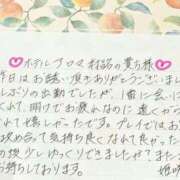 ホテルアロマ 村名の貴方様
昨日はお誘い頂きありがとうございまし
りの出勤でしたが、1番に会いに
くれて、明けでお疲れなのに遠くから
れて嬉しかったです。プレイではお
攻め合って気持ち良くなれて良かった
の後少しゆっくりできましたか？また
お待ちしております。 姫咲